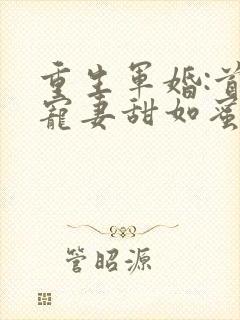 重生軍婚:首
寵妻甜如蜜
管昭源